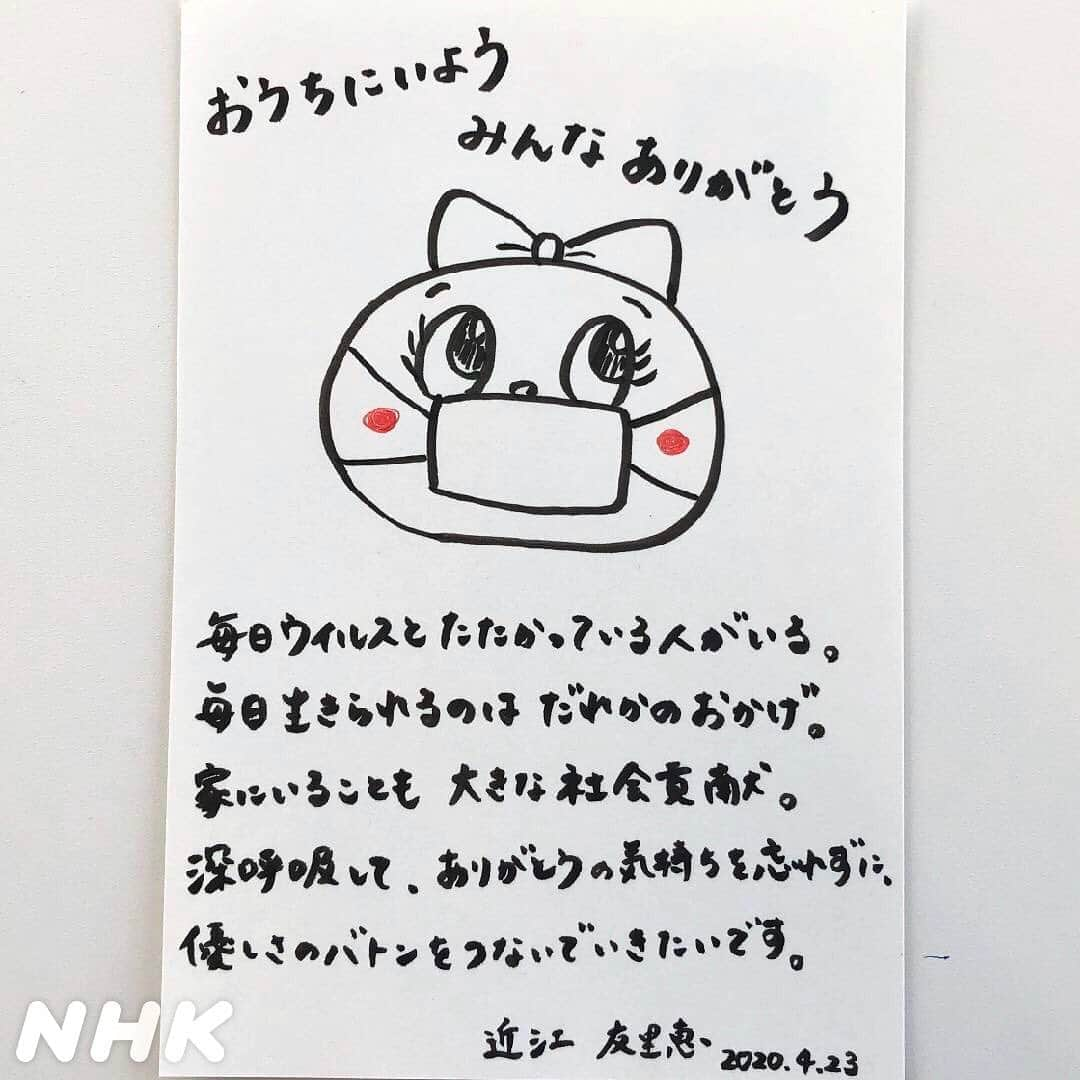 おうちにいよう
みんな ありがとう
毎日ウイルスとたたかっている人がいる。
毎日生きられるのは だれかのおかげ。
家にいることも 大きな社会貢献。
深呼吸して、ありがとうの気持ちを忘れずに、
優しさのバトンをつないでいきたいです。
近江 友里恵
2020.4.23
NHK